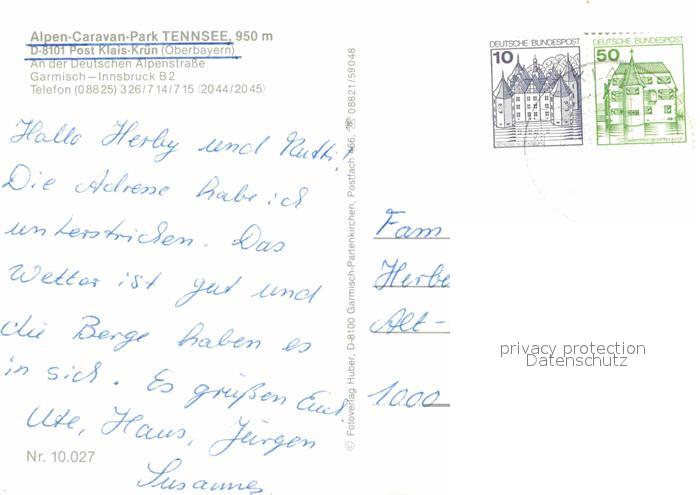 Alpen-Caravan-Park TENNSEE, 950 m
D-8101 Post Klais-Krün (Oberbayern)
An der Deutschen Alpenstraße
Garmisch – Innsbruck B 2
Telefon (08825) 326/714/715 (2044/2045)
Hallo Herby und Mutti!
Die Adresse habe ich
unterstrichen. Das
Wetter ist gut und
die Berge haben es
in sich. Es grüßen Euch
Ute, Hans, Jürgen
Susannes
Nr. 10.027
© Fotoverlag Huber, D-8100 Garmisch-Partenkirchen, Postfach 466, ☎ 08821/59048
10 DEUTSCHE BUNDESPOST
50 DEUTSCHE BUNDESPOST
Fam
Herbe
Alt-
1000
privacy protection
Datenschutz